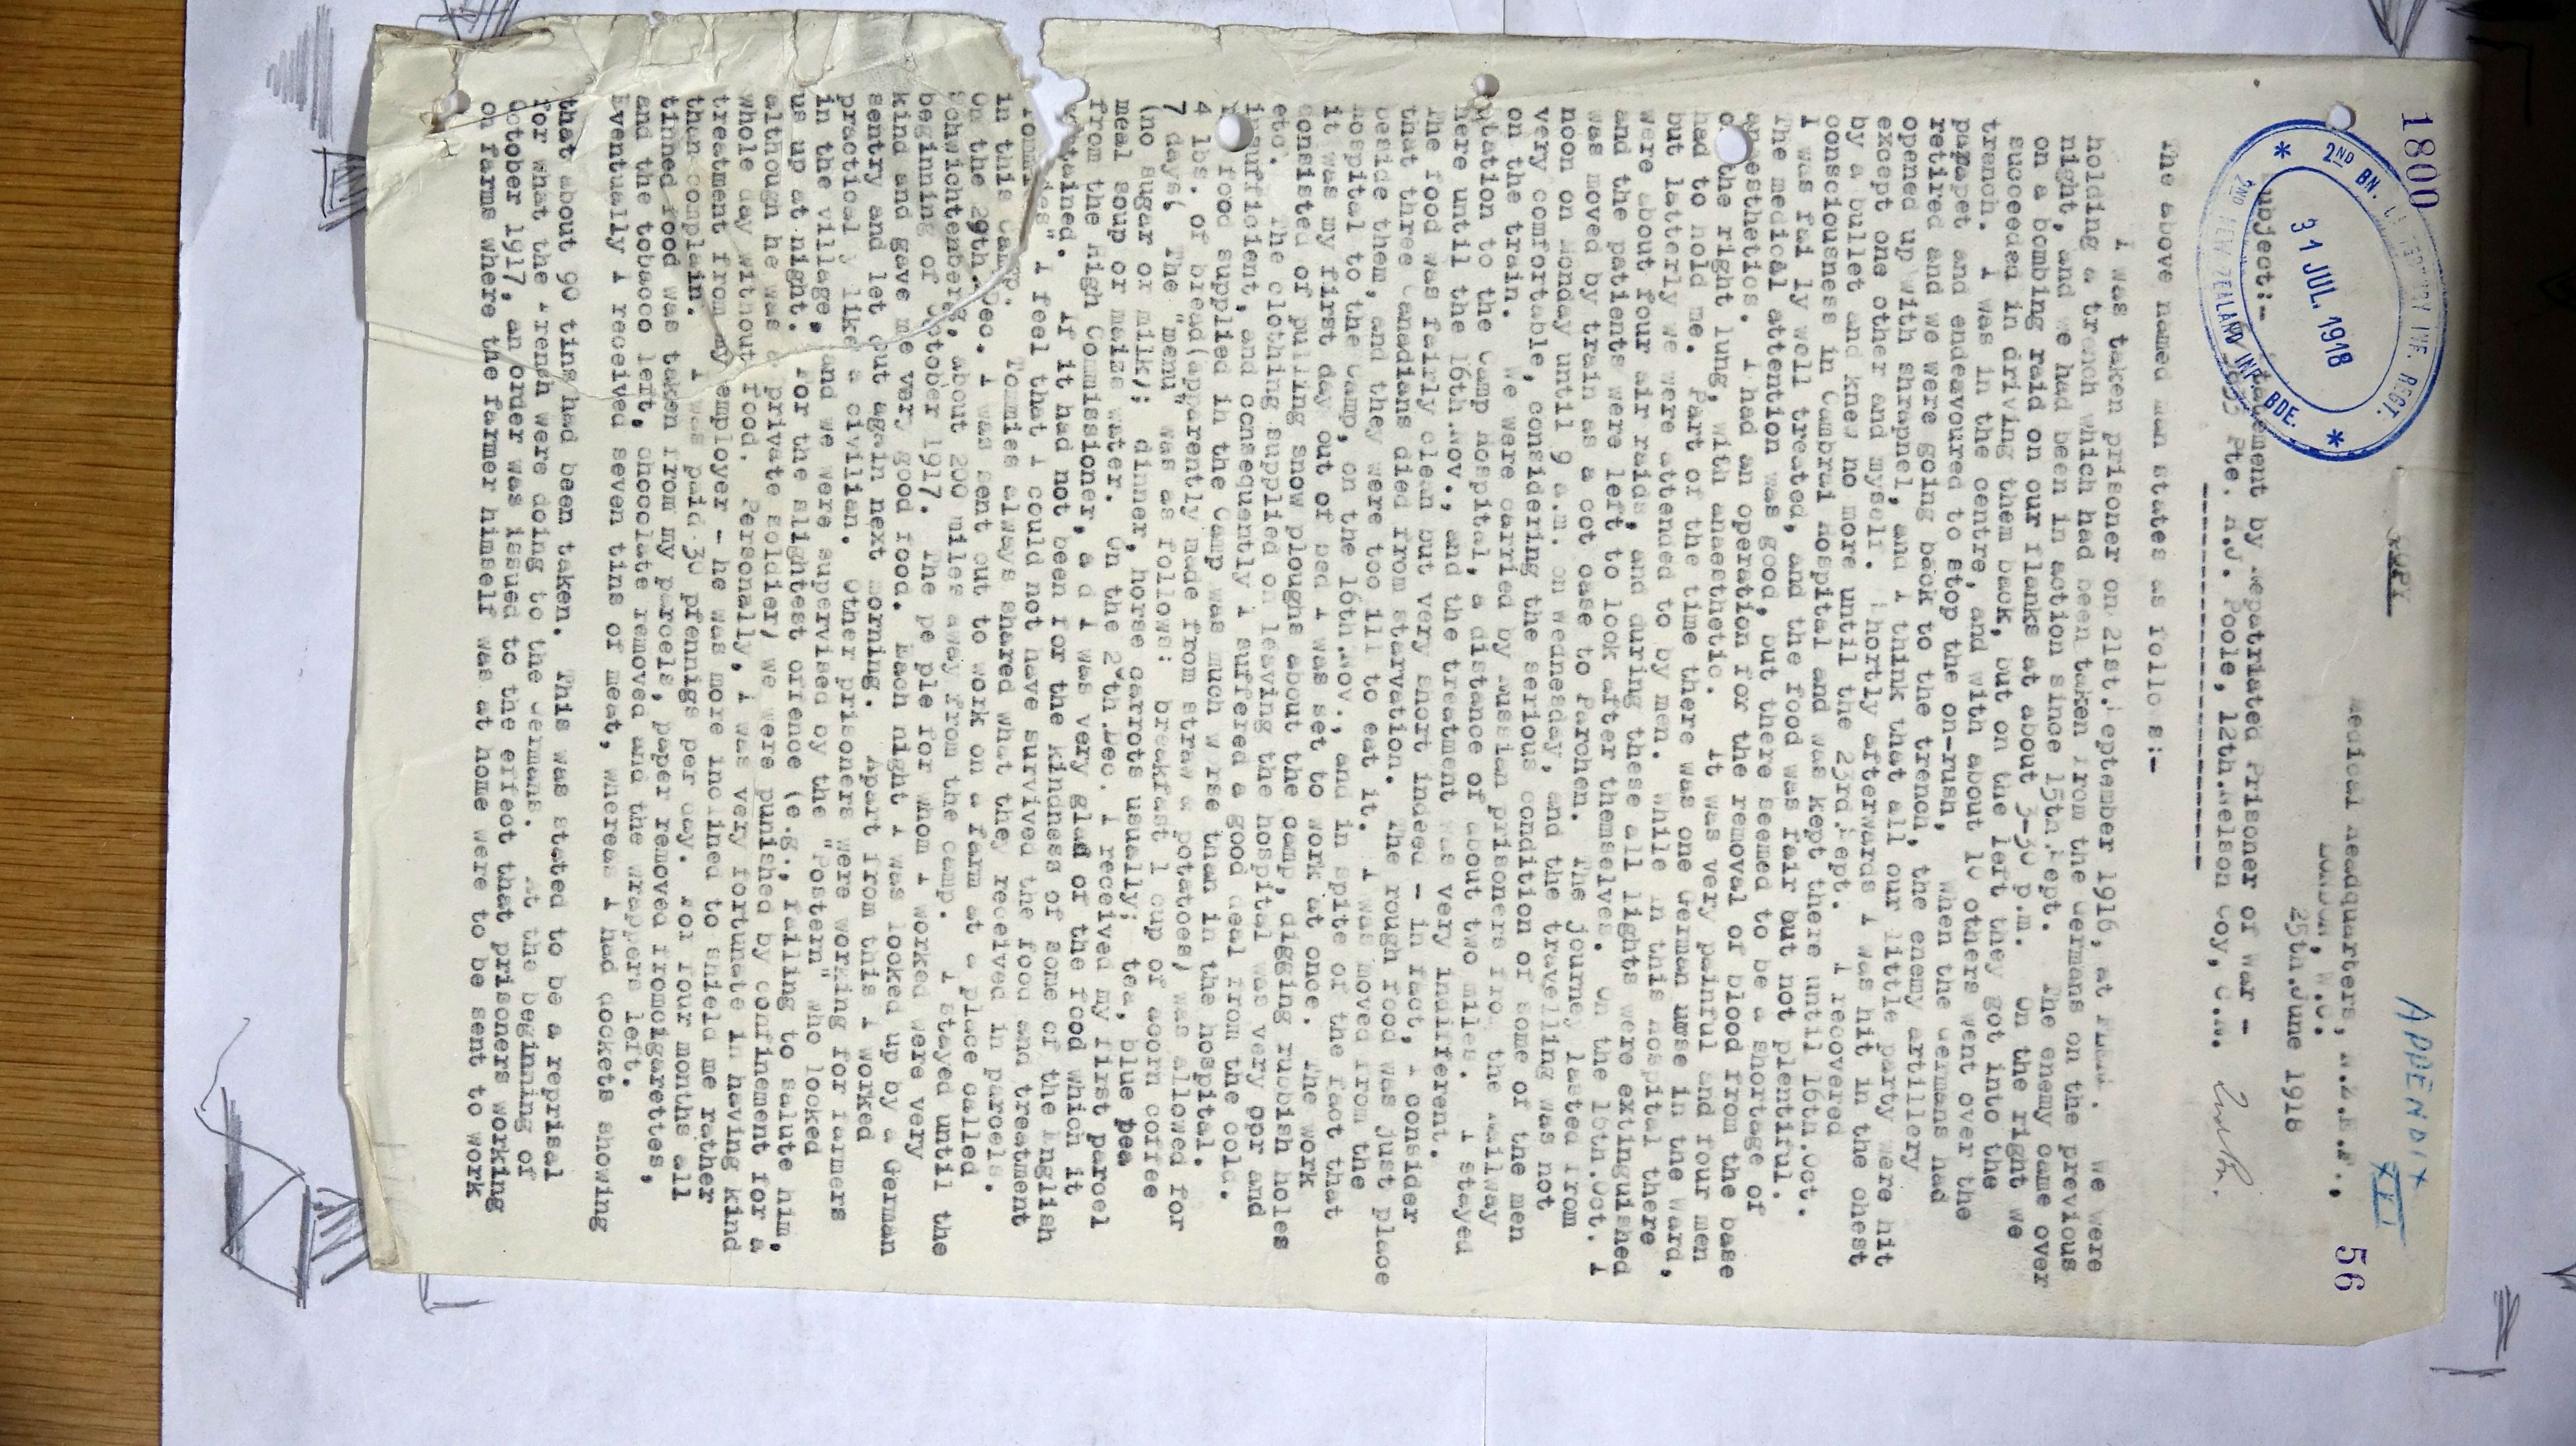 1800
APPENDIX XII
56
COPY
2ND BN. CANTERBURY INF. REGT.
31 JUL. 1918
2ND NEW ZEALAND INF. BDE.
Medical Headquarters, N.Z.E.F.,
London, W.C.
25th.June 1918
Subject:- Statement by Repatriated Prisoner of War -
Pte. N.J. Poole, 12th.Nelson Coy, C.R.
The above named man states as follows:-
I was taken prisoner on 21st.September 1916, at . We were
holding a trench which had been taken from the Germans on the previous
night, and we had been in action since 15th.Sept. The enemy came over
on a bombing raid on our flanks at about 3-30 p.m. On the right we
succeeded in driving them back, but on the left they got into the
trench. I was in the centre, and with about 10 others went over the
parapet and endeavoured to stop the on-rush, when the Germans had
retired and we were going back to the trench, the enemy artillery
opened up with shrapnel, and I think that all our little party were hit
except one other and myself. Shortly afterwards I was hit in the chest
by a bullet and knew no more until the 23rd.Sept. I recovered
consciousness in Cambrai hospital and was kept there until 16th.Oct.
I was fairly well treated, and the food was fair but not plentiful.
The medical attention was good, but there seemed to be a shortage of
anaesthetics. I had an operation for the removal of blood from the base
of the right lung, with anaesthetic. It was very painful and four men
had to hold me. Part of the time there was one German nurse in the ward,
but latterly we were attended to by men. While in this hospital there
were about four air raids, and during these all lights were extinguished
and the patients were left to look after themselves. On the 16th.Oct. I
was moved by train as a cot case to Parchen. The journey lasted from
noon on Monday until 9 a.m. on Wednesday, and the travelling was not
very comfortable, considering the serious condition of some of the men
on the train. We were carried by Russian prisoners from the Railway
Station to the Camp hospital, a distance of about two miles. I stayed
here until the 16th.Nov., and the treatment was very indifferent.
The food was fairly clean but very short indeed - in fact, I consider
that three Canadians died from starvation. The rough food was just place
beside them, and they were too ill to eat it. I was moved from the
hospital to the Camp, on the 16th.Nov., and in spite of the fact that
it was my first day out of bed I was set to work at once. The work
consisted of pulling snow ploughs about the camp, digging rubbish holes
etc. The clothing supplied on leaving the hospital was very opr and
insufficient, and consequently I suffered a good deal from the cold.
The food supplied in the Camp was much worse than in the hospital.
4 lbs. of bread(apparently made from straw & potatoes) was allowed for
7 days, The "menu" was as follows: breakfast 1 cup of acorn coffee
(no sugar or milk); dinner, horse carrots usually; tea, blue pea
meal soup or maize water. On the 2th.Dec. I received my first parcel
from the High Commissioner, and I was very glad of the food which it
contained. If it had not been for the kindness of some of the English
"Tommies" I feel that I could not have survived the food and treatment
in this camp. Tommies always shared what they received in parcels.
On the 29th.Dec. I was sent out to work on a farm at a place called
Schwichtenberg, about 200 miles away from the camp. I stayed until the
beginning of October 1917. The people for whom I worked were very
kind and gave me very good food. Each night I was locked up by a German
sentry and let out again next morning. Apart from this I worked
practically like a civilian. Other prisoners were working for farmers
in the village, and we were supervised by the "Postern" who locked
us up at night. For the slightest offence (e.g., failing to salute him,
although he was a private soldier) we were punished by confinement for a
whole day without food. Personally, I was very fortunate in having kind
treatment from my employer - he was more inclined to shield me rather
than complain. I was paid 30 pfennigs per day. For four months all
tinned food was taken from my parcels, paper removed fromcigarettes,
and the tobacco left, chocolate removed and the wrappers left.
Eventually I received seven tins of meat, whereas I had dockets showing
that about 90 tins had been taken. This was stated to be a reprisal
for what the French were doing to the Germans. At the beginning of
October 1917, an order was issued to the effect that prisoners working
on farms where the farmer himself was at home were to be sent to work